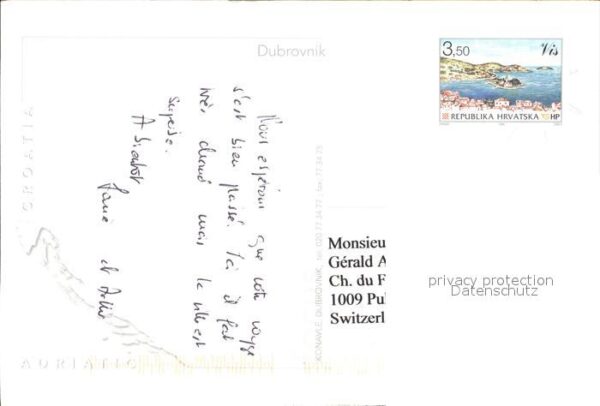 Dubrovnik
3,50
Vis
REPUBLIKA HRVATSKA
HP
CROATIA
ADRIATIC
Nous espérons que votre voyage
s'est bien passé. Ici il fait
très chaud mais la ville est
superbe.
A bientôt
et
KONAVLE, DUBROVNIK, tel. 020 77 34 77 / fax. 77 34 75
Monsieu
Gérald A
Ch. du F
1009 Pul
Switzerl
privacy protection
Datenschutz